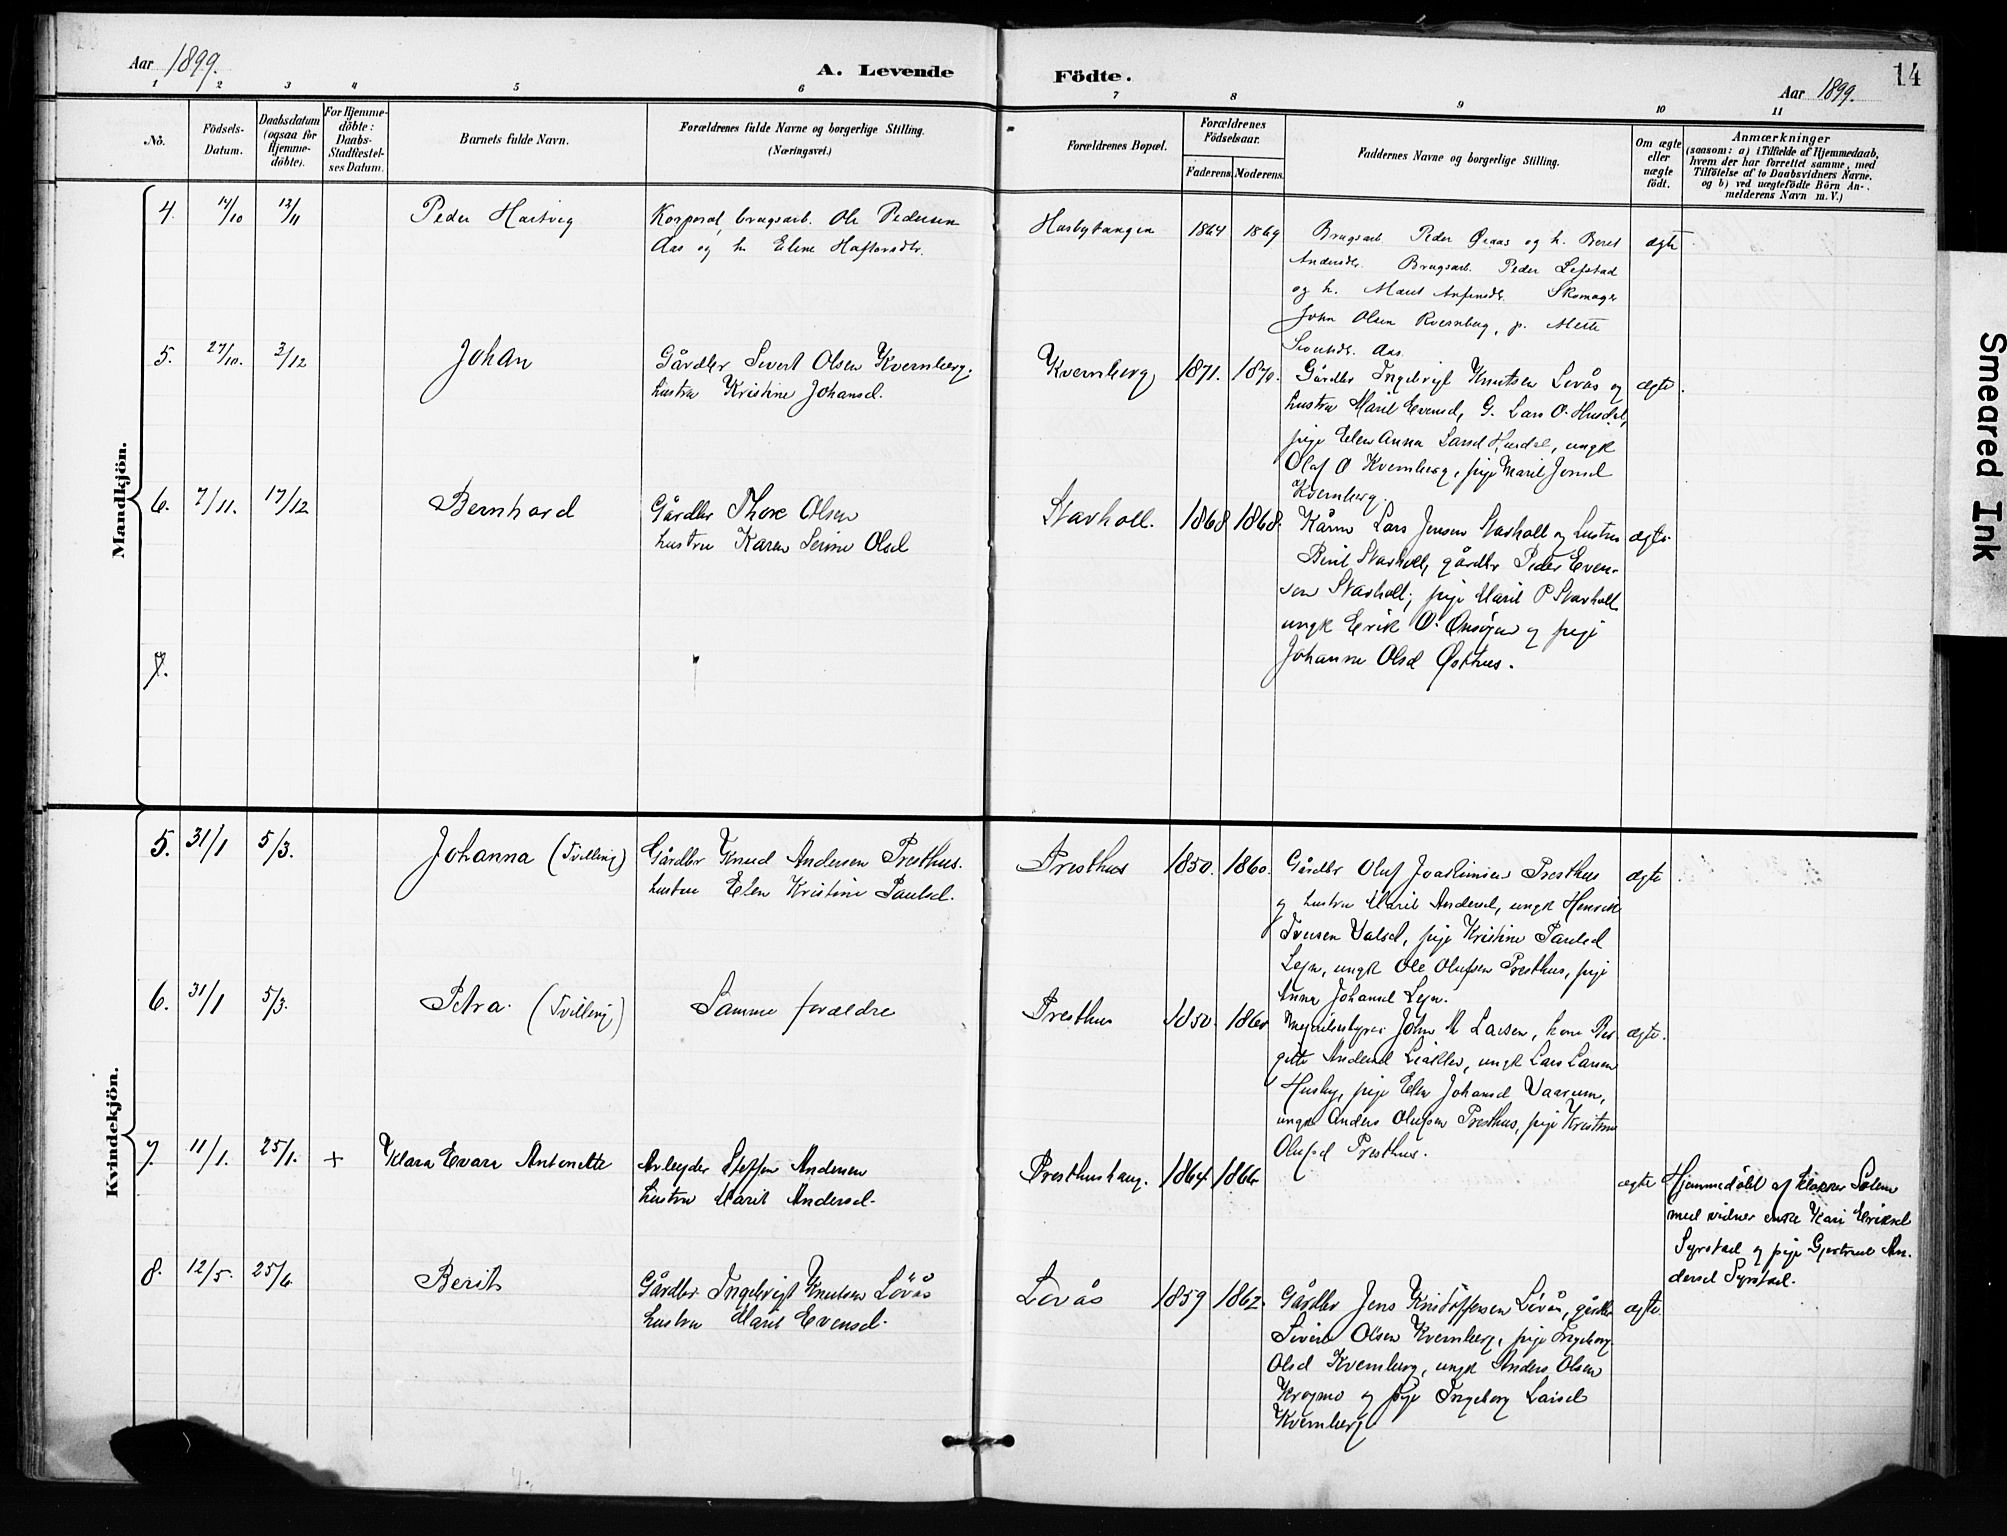 Aar 1899.
A. Levende
Födte.
Aar 1899.
14
1 2 3 4 5 6 7 8 9 10 11
No.
Födsels-
Datum.
Daabsdatum
(ogsaa for
Hjemme-
döbte).
For Hjemme-
döbte:
Daabs-
Stadfæstel-
ses Datum.
Barnets fulde Navn.
Forældrenes fulde Navne og borgerlige Stilling.
(Næringsvei.)
Forældrenes Bopæl.
Forældrenes
Födselsaar.
Faderens. Moderens.
Faddernes Navne og borgerlige Stilling.
Om ægte
eller
uægte
födt.
Anmærkninger
(saasom: a) i Tilfælde af Hjemmedaab,
hvem der har forrettet samme, med
Tilföielse af to Daabsvidners Navne.
og b) ved uægtefödte Börn An-
melderens Navn m. V.)
Mandkjön.
4. /10 12/11 Peder Hartvig
Korporal, brugsarb. Ole Pedersen
Aas og h. Elene Haftorsdtr.
Husbytangen 1864 1869
Brugsarb. Peder Øiaas og h. Beret
Andersdtr. Brugsarb. Peder Lefstad
og h. Marit Arfinsdtr. Skomager
John Olsen Kvernberg, p. Mette
Sivertsdtr. Aas.
ægte
5. 27/10. 3/12 Johan
Gårdbr Sivert Olsen Kvernberg.
hustru Kristine Johansd.
Kvernberg 1871. 1870.
Gårdbr Ingebrigt Knutsen Lovås og
hustru Marit Evensd, G. Lars O. Husdal,
pige Elen Anna Larsd Husdal, ungk
Olaf O Kvernberg, pige Marit Jonsd
Kvernberg.
ægte.
6. 7/11. 17/12 Bernhard
Gårdbr Thore Olsen
hustru Karen Serine Olsd
Stavholl. 1868 1868.
Kårm Lars Jensen Stavholl og hustru
Berit Stavholl, gårdbr Peder Even-
sen Stavholl, pige Marit P Stavholl
ungk Erik O. Onsøjen og pige
Johanna Olsd Østhus.
ægte.
7.
Kvindekjön.
5. 31/1 5/3. Johanna (Tvilling)
Gårdbr Knud Andersen Presthus.
hustru Elen Kristine Paulsd.
Presthus 1850. 1860.
Gårdbr Oluf Joakimsen Presthus
og hustru Marit Andersd, ungk Henrik
Iversen Valsd, pige Kristine Paulsd
Lejn, ungk Ole Olufsen Presthus, pige
Anna Johansd Lejn.
ægte
6. 31/1 5/3. Petra. (Tvilling)
Samme forældre
Presthus 1850. 1860.
John M Larsen, kone Bir-
gitte Andersd, ungk Lars Larsen
Husby, pige Elen Johansd Vaarum,
ungk Anders Olufsen Presthus, pige Kristine
Olufsd Presthus.
ægte.
7. 11/1. 25/1. + Klara Evara Antonette
Arbejder Steffen Andersen
hustru Marit Andersd.
Presthushaug. 1864. 1866
ægte
Hjemmedøbt af Klokker Solem
med vidner enke Kari Eriksd
Syrstad og pige Gjertrud An-
dersd Syrstad.
8. 12/5. 25/6. Berit
Gårdbr. Ingebrigt Knutsen Lövås
hustru Marit Evensd.
Lovås 1859 1862.
Gårdbr Jens Kristoffersen Lövås, gårdbr
Sivert Olsen Kvernberg, pige Ingeborg
Olsd Kvernberg, ungk Anders Olsen
Krogmo og pige Ingeborg Larsd
Kvernberg
ægte.
Smeared Ink